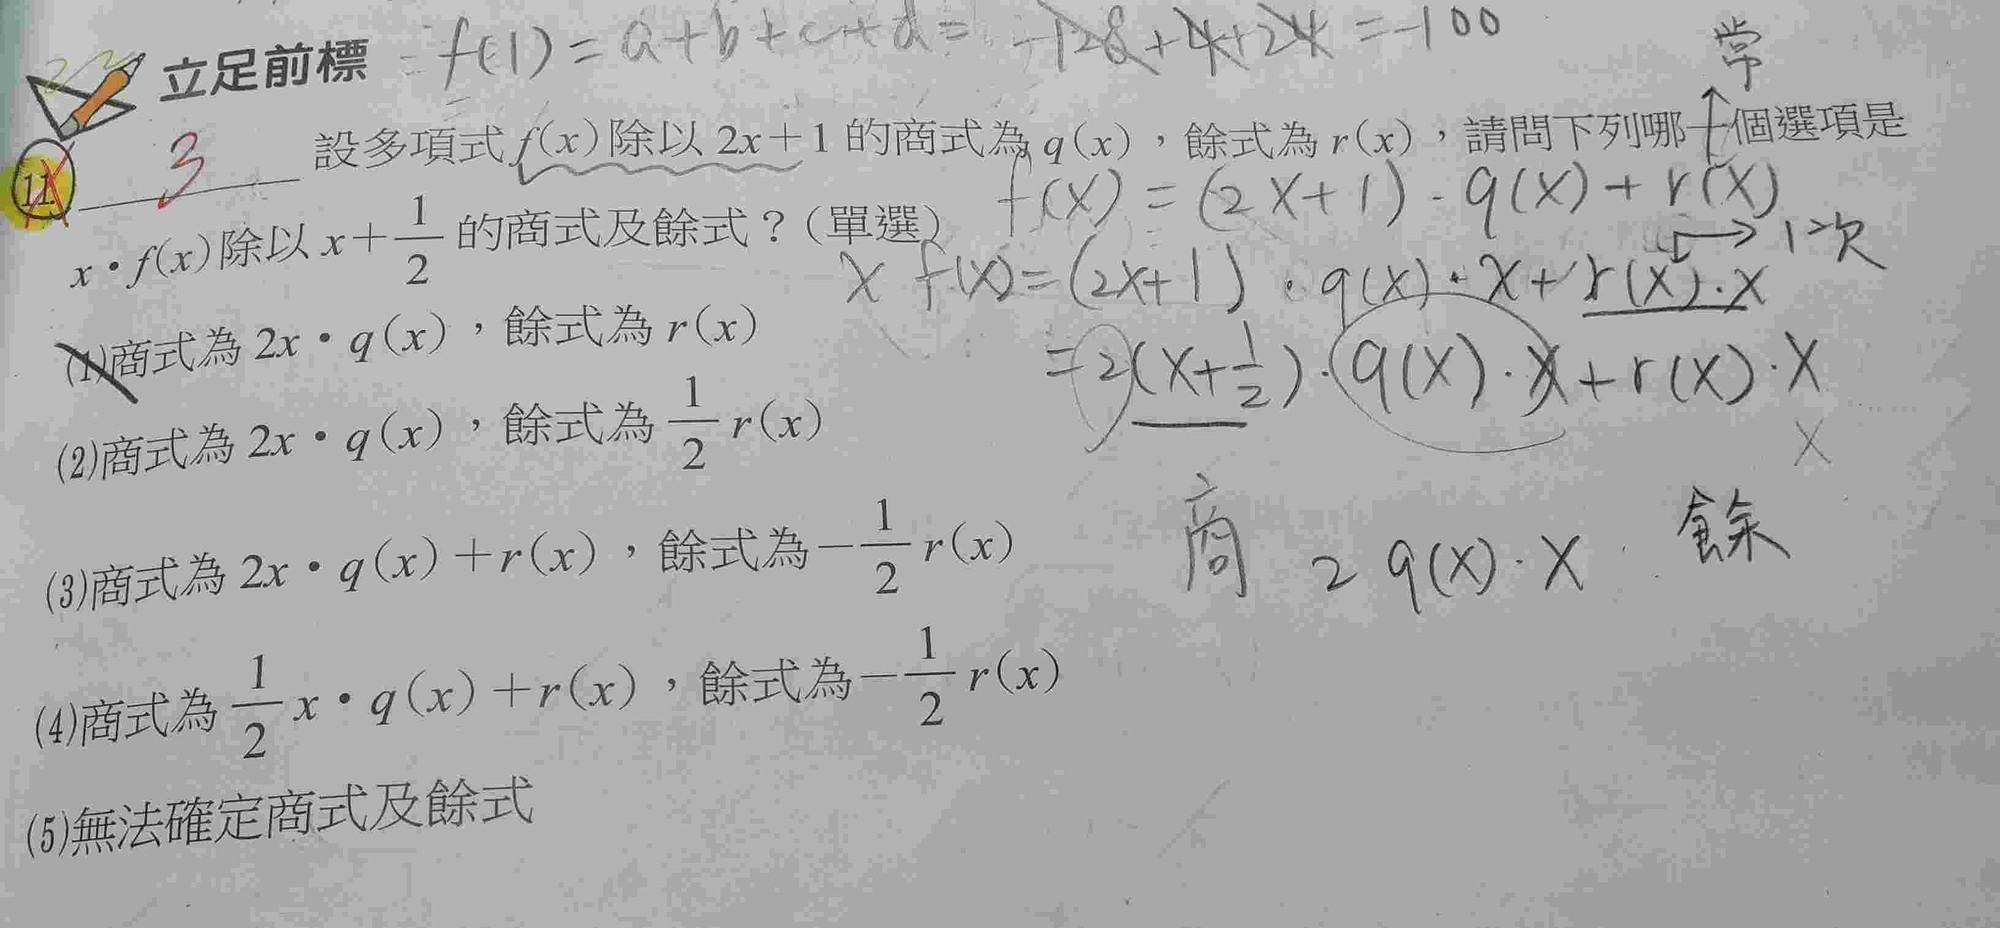 = f(1) = a+b+c+d = -128+4+24 = -100
立足前標
常
11. 3 設多項式 f(x) 除以 2x+1 的商式為 q(x),餘式為 r(x),請問下列哪一個選項是
f(x) = (2x+1)·q(x)+r(x)
x·f(x) 除以 x+1/2 的商式及餘式?(單選)
→ 1次
x f(x) = (2x+1)·q(x)·x+r(x)·x
(1)商式為 2x·q(x),餘式為 r(x)
= 2(x+1/2)·q(x)·x+r(x)·x
x
(2)商式為 2x·q(x),餘式為 1/2 r(x)
商 2q(x)·x 餘
(3)商式為 2x·q(x)+r(x),餘式為 -1/2 r(x)
(4)商式為 1/2 x·q(x)+r(x),餘式為 -1/2 r(x)
(5)無法確定商式及餘式